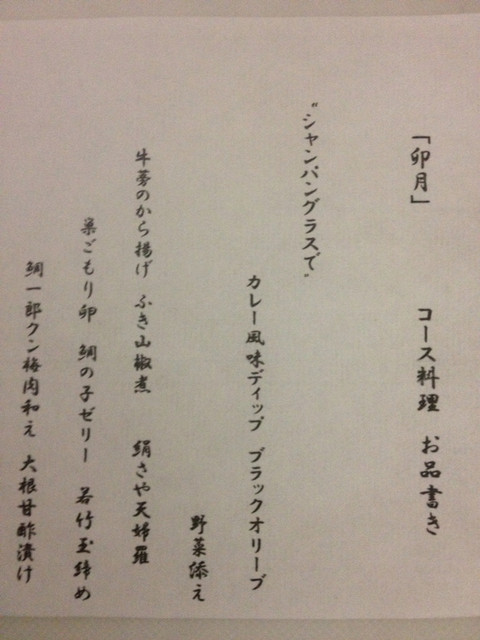 「卯月」 コース料理 お品書き
“シャンパングラスで”
カレー風味ディップ ブラックオリーブ
野菜添え
牛蒡のから揚げ ふき山椒煮 絹さや天婦羅
巣ごもり卵 鯛の子ゼリー 若竹玉締め
鯛一郎クン梅肉和え 大根甘酢漬け